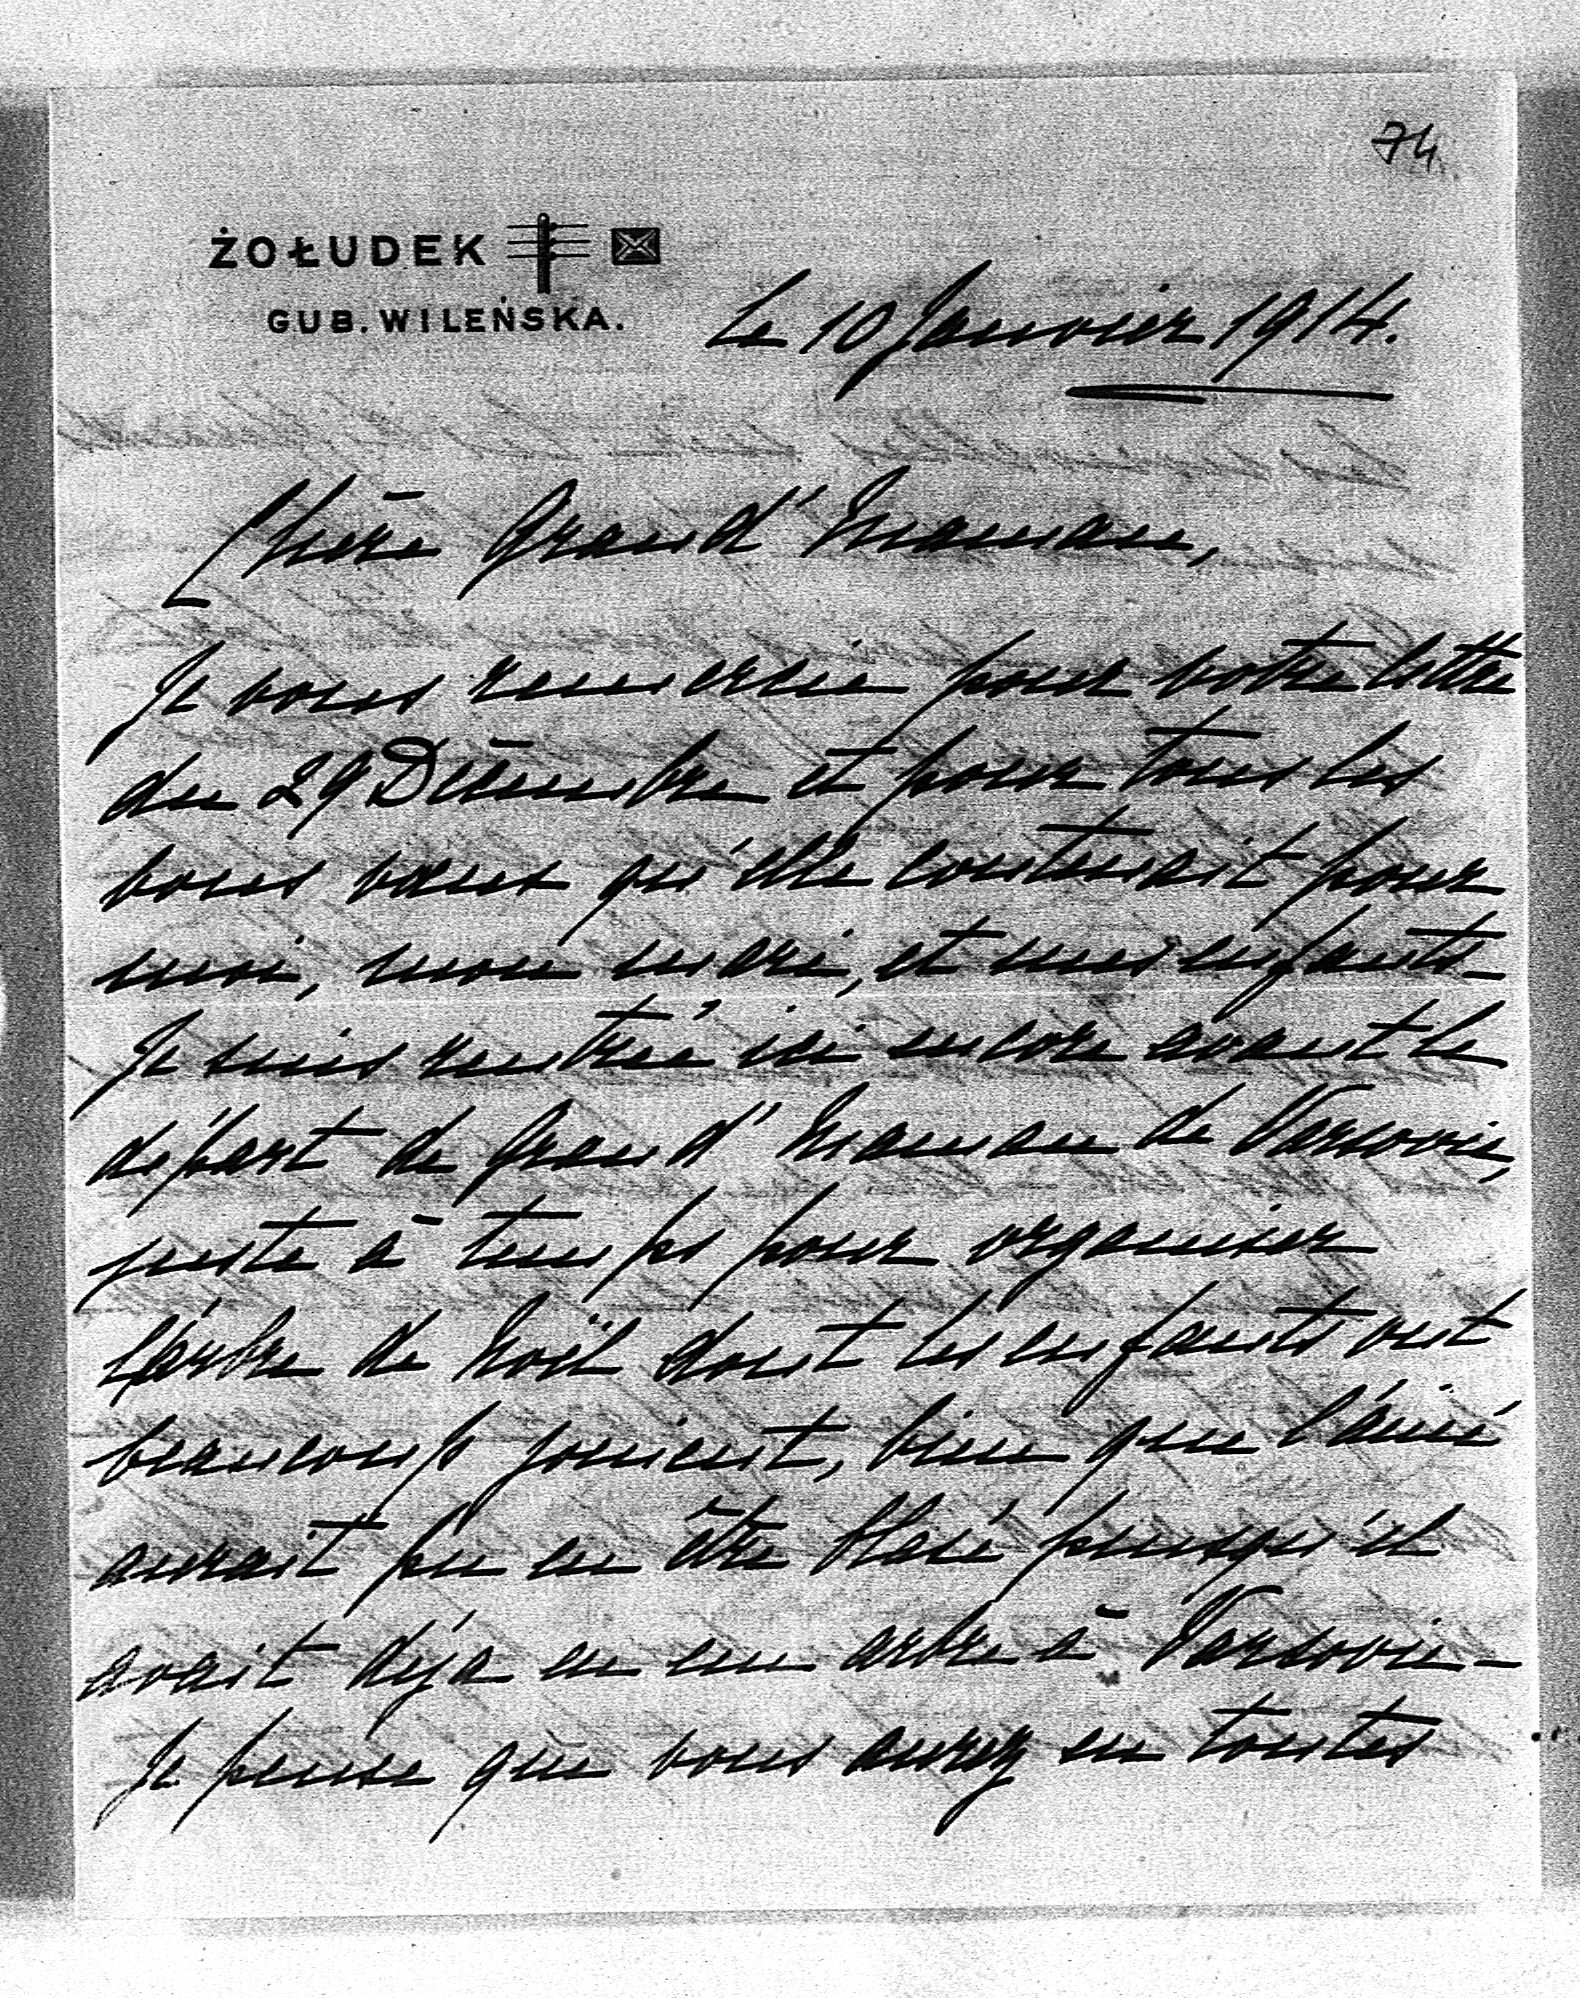 74
ŻOŁUDEK
GUB. WILEŃSKA.
Le 10 Janvier 1914.
Chère Grand' Maman,
Je vous remercie pour votre lettre
du 29 Décembre et pour tous les
bons vœux qu'elle contenait pour
moi, mon mari, et mes enfants_
Je suis rentrée ici encore avant le
départ de Grand' Maman de Varsovie,
juste à temps pour organiser
l'arbre de Noël dont les enfants ont
beaucoup jouient, bien que l'ainé
aurait pu en être blasé puisqu'il
avait déja eu un arbre à Varsovie_
Je pense que vous aurez eu toutes